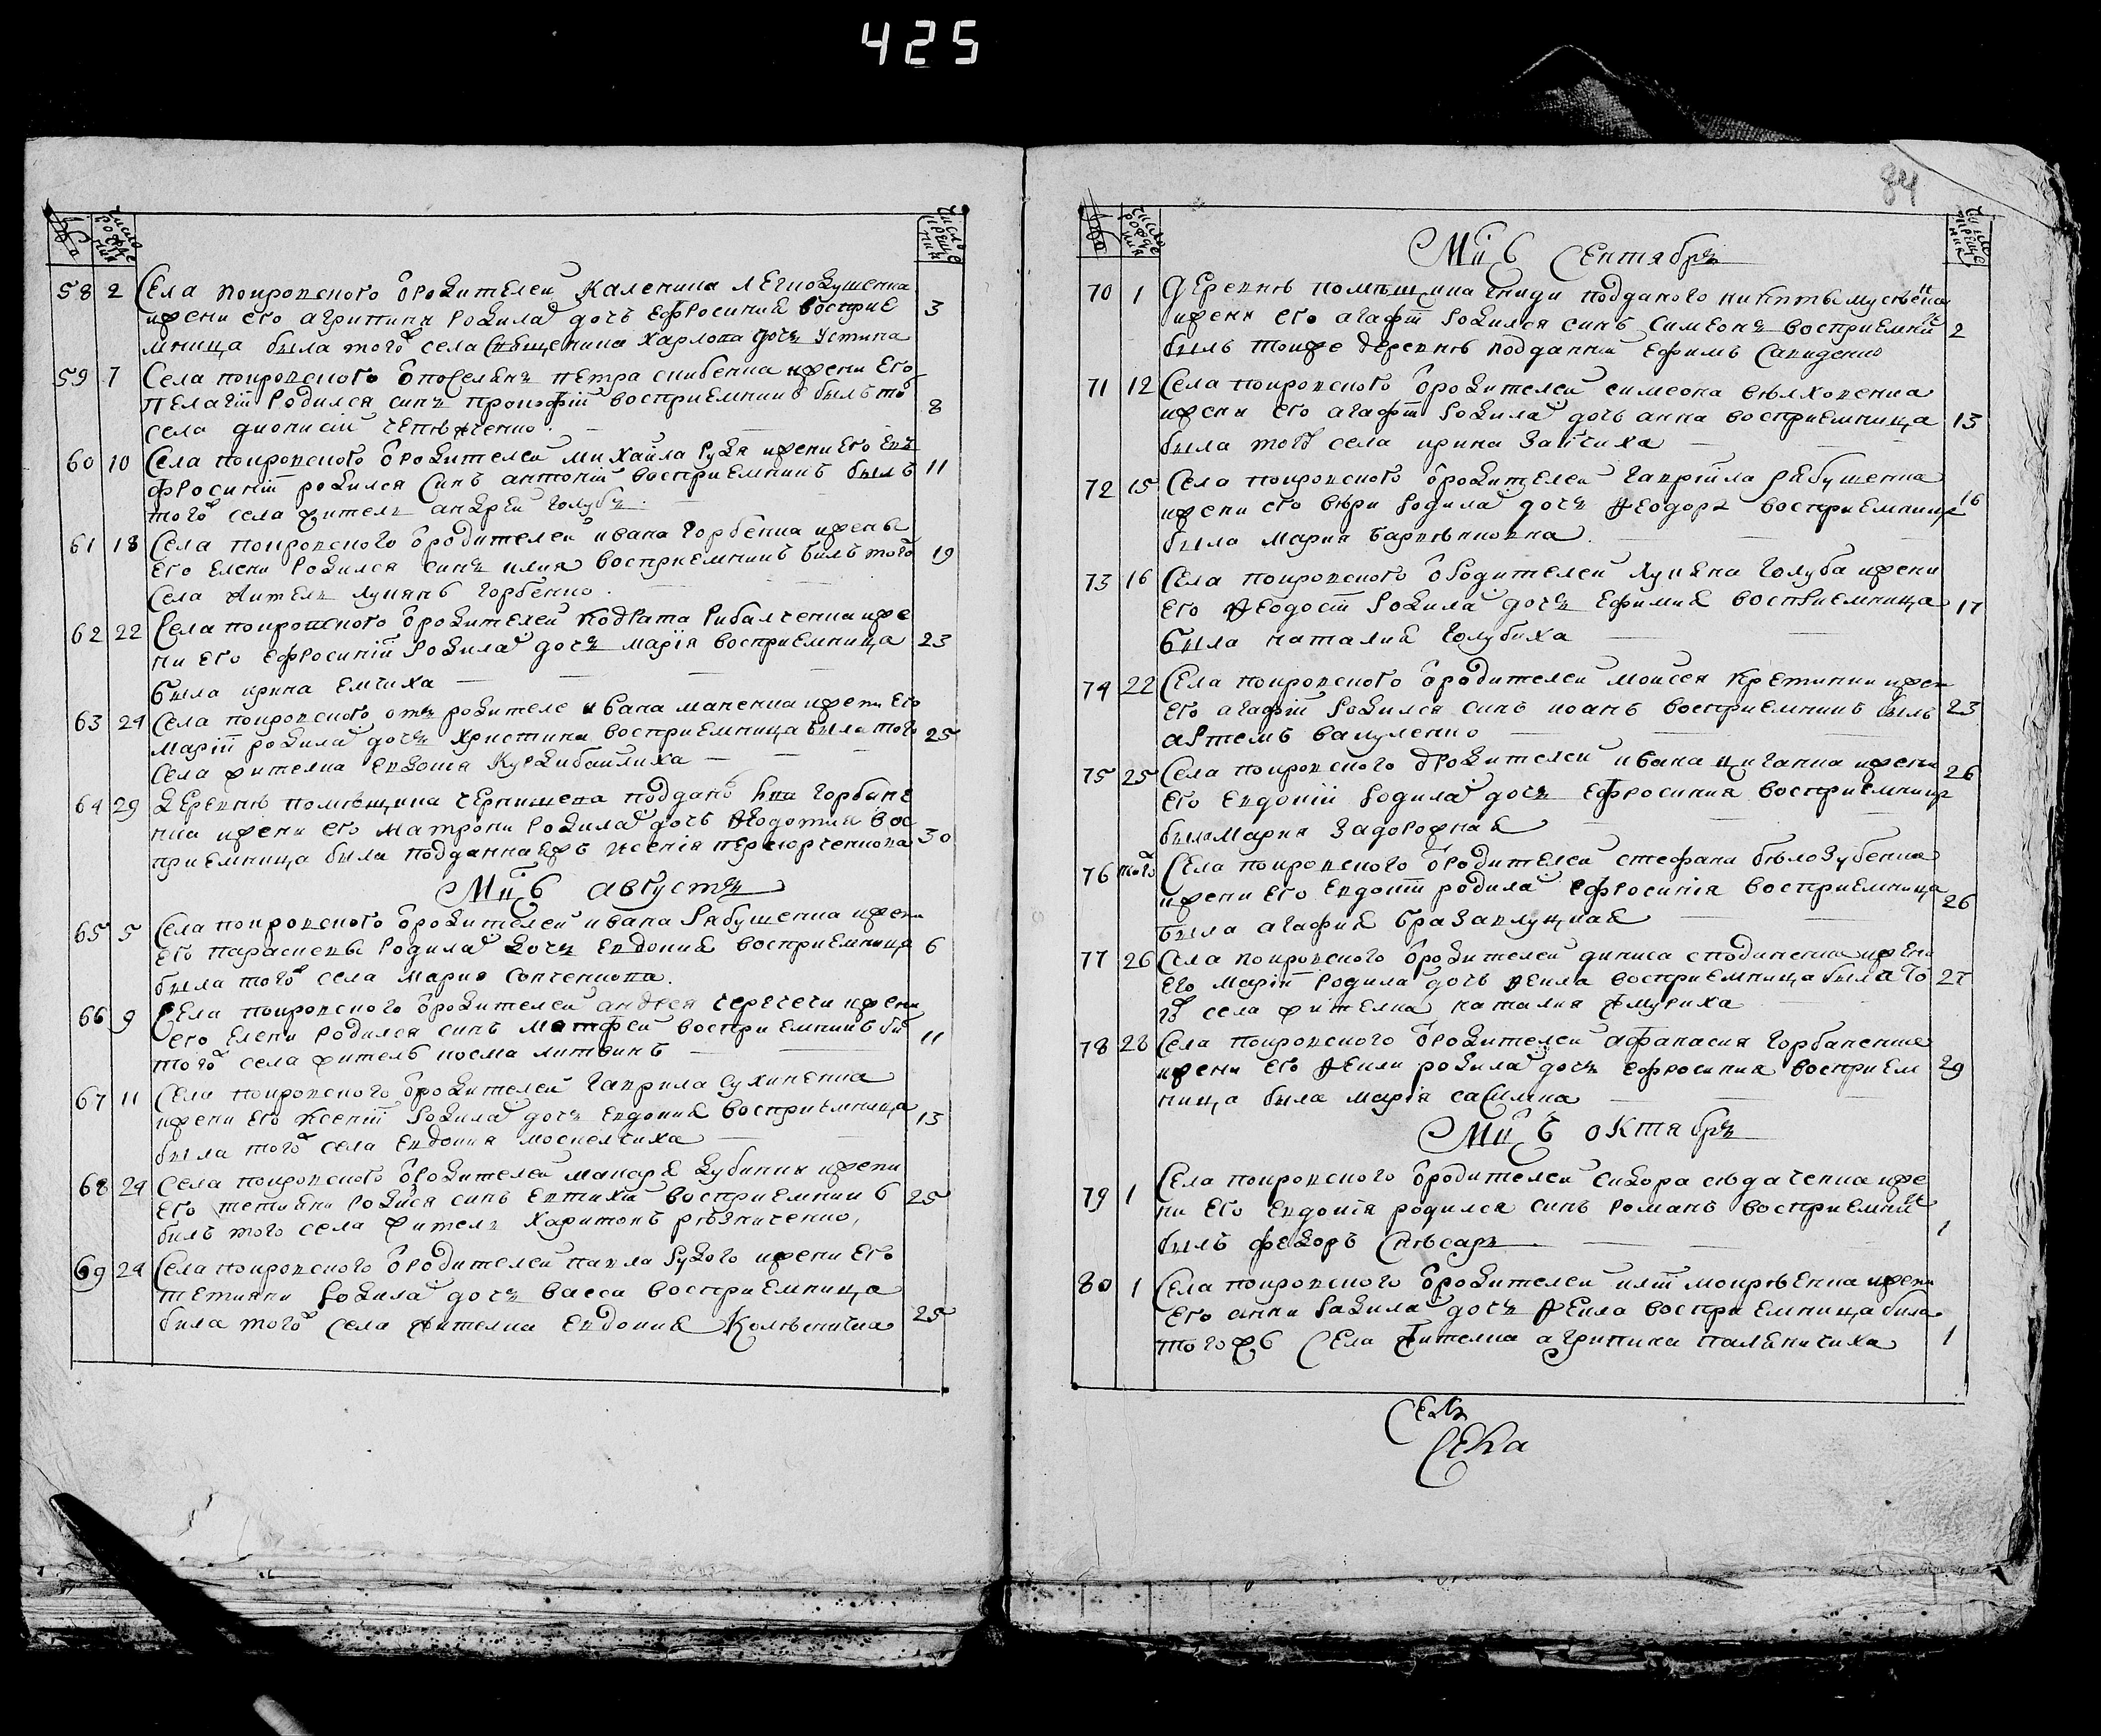 425
84
число рожденія
число крещенія
58 2 Села покровского ѿ родителей Каленика Легкодушенка
и жени его агрипини родила дочъ Ефросиния восприе 3
мница была того села Священика Харлопа дочъ Устина
59 7 Села покровского ѿ поселянъ петра скибенка и жени его
пелагіи родился синъ прокофій восприемникъ былъ то 8
села дионисій
60 10 Села покровского ѿ родителей михаила рудя и жени его ев
фросиніи родился синъ антоній восприемникъ былъ 11
того села житель андрей голубъ
61 18 Села покровского ѿ родителей ивана горбенка и жены
его елени родился синъ илия восприемникъ билъ того 19
села житель лукянъ горбенко
62 22 Села покровского ѿ родителей кодрата рибалченка и же
ни его ефросиніи родила дочъ марія восприемница 23
была ирина емчиха
63 24 Села покровского отъ родителе ивана макенка и жени его
маріи родила дочъ христина восприемница была того 25
села жителка евдокия
64 29 Деревнѣ помѣщика чернишева подданъ горбане
нка и жени его матрони родила дочъ ѳеодотия вос
приемница была подданна жъ ксенія 30
Мцъ августъ
65 5 Села покровского ѿ родителей ивана рябушенка и жени
его параскевы родила дочъ евдокия восприемница 6
была того села мария сопченкова
66 9 Села покровского ѿ родителей андрея черечечи и жени
его елени родился синъ матфей восприемникъ би 11
того села житель косма литвинъ
67 11 Села покровского ѿ родителей гаврила сухиненка
и жени его ксеніи родила дочъ евдокия восприемница 13
была того села евдокия москелчиха
68 24 Села покровского ѿ родителей макаря дубини и жени
его тетияни родился синъ евтихій восприемникъ 25
билъ того села житель харитонъ рѣзниченко,
69 24 Села покровского ѿ родителей павла рудого и жени его
тетияни родила дочъ васса восприемница
била того села жителка евдокия Колѣсничка 25
число рожденія
число крещенія
Мцъ Сентябръ
70 1 Деревнѣ помѣщика гниди подданого никиты мусѣенка
и жени его агафіи родился синъ симеонъ восприемни 2
былъ тоиже деревнѣ подданій ефимъ сапиденко
71 12 Села покровского ѿ родителей симеона вѣлховенка
и жени его агафіи родила дочъ анна восприемница 13
была того села ирина зайчиха
72 15 Села покровского ѿ родителей гавріила рябушенка
и жени его вѣри родила дочъ ѳеодора восприемница 16
была мария
73 16 Села покровского ѿ родителей лукяна голуба и жени
его ѳеодосіи родила дочъ ефимия восприемница 17
была наталия голубиха
74 22 Села покровского ѿ родителей моисея кретинки и жени
его агафіи родился синъ иоанъ восприемникъ былъ 23
артемъ вакуленко
75 25 Села покровского ѿ родителей ивана циганка и жени 26
его евдокіи родила дочъ ефросиния восприемница
была мария задорожная
76 того Села покровского ѿ родителей стефана бѣлозубенка
и жени его евдокіи родила ефросинія восприемница 26
была агафия
77 26 Села покровского ѿ родителей диниса сподиненка и жени
его маріи родила дочъ ѳекла восприемница была то 27
го села жителка наталия жмуриха
78 28 Села покровского ѿ родителей афанасия горбаненка
и жени его ѳекли родила дочъ ефросиния восприем 29
ница была марія савчика
Мцъ октябръ
79 1 Села покровского ѿ родителей сидора сѣдаченка и же
ни его евдокія родился синъ романъ восприемник
былъ федоръ слѣсаръ 1
80 1 Села покровского ѿ родителей иліи мокрѣенка и жени
его анни радила дочъ ѳекла восприемница била
тогожъ села жителка агрипина паляничиха 1